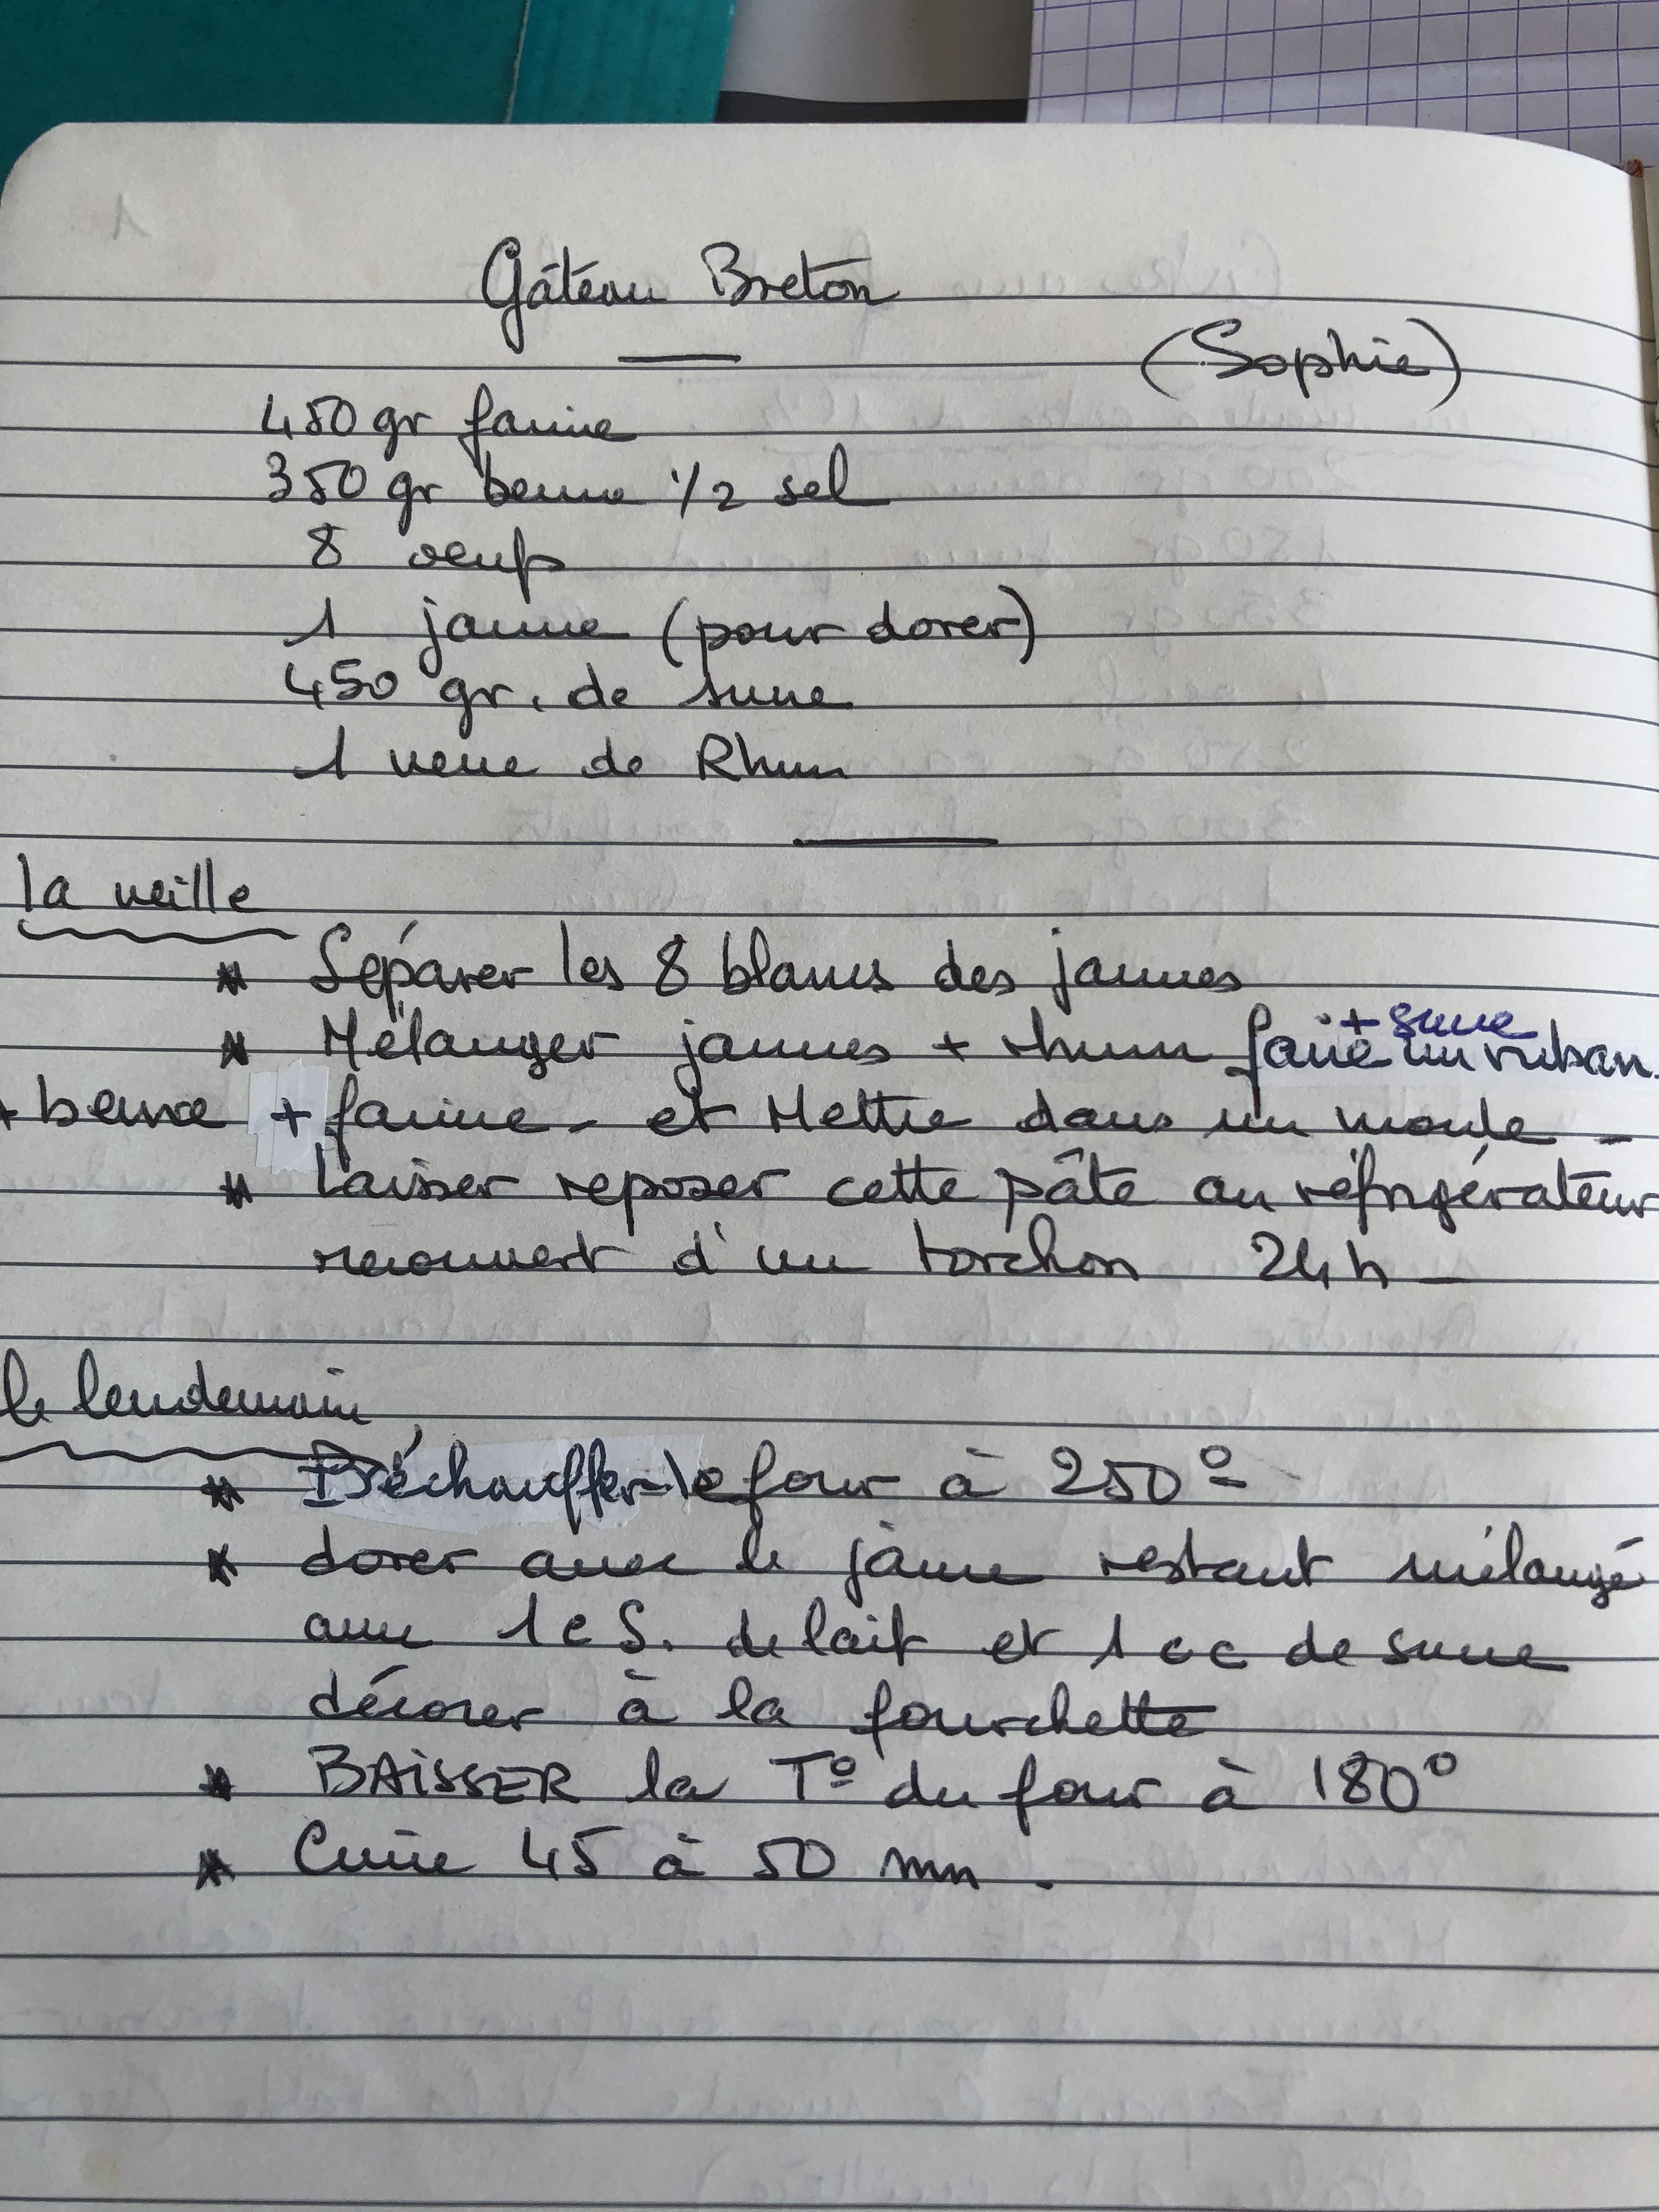 1
Gâteau Breton
(Sophie)
450 gr farine
350 gr beurre 1/2 sel
8 oeufs
1 jaune (pour dorer)
450 gr. de sucre
1 verre de Rhum
la veille
* Séparer les 8 blancs des jaunes
+ sucre
* Mélanger jaunes + rhum faire un ruban
+ beurre + farine - et Mettre dans un moule -
* Laisser reposer cette pâte au réfrigérateur
recouvert d'un torchon 24 h -
le lendemain
* Préchauffer le four à 250°
* dorer avec le jaune restant mélangé
avec 1 c S. de lait et 1 cc de sucre
décorer à la fourchette
* BAISSER la T° du four à 180°
* Cuire 45 à 50 mn.